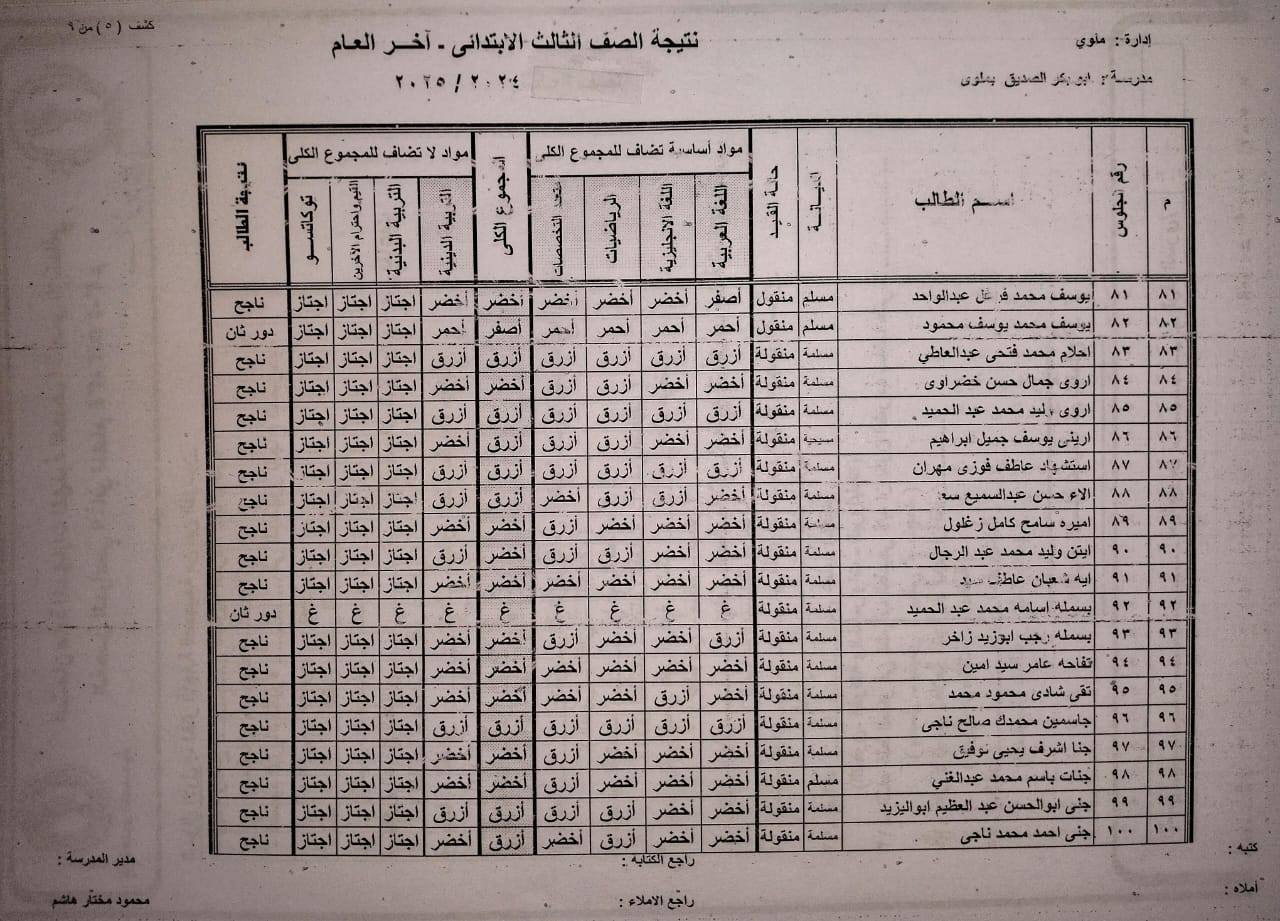 كشف ( ٥ ) من ٩
إدارة : ملوي
نتيجة الصف الثالث الابتدائى - آخر العام
مدرسة : ابو بكر الصديق بملوى
٢٠٢٤ / ٢٠٢٥
م رقم الجلوس اسم الطالب الديانة حالة القيد مواد أساسية تضاف للمجموع الكلى المجموع الكلى مواد لا تضاف للمجموع الكلى نتيجة الطالب
اللغة العربية اللغة الانجليزية الرياضيات متعدد التخصصات التربية الدينية التربية البدنية القيم واحترام الآخرين توكاتسو
٨١ ٨١ يوسف محمد عبدالواحد مسلم منقول أصفر أخضر أخضر أخضر أخضر أخضر اجتاز اجتاز اجتاز ناجح
٨٢ ٨٢ يوسف محمد يوسف محمود مسلم منقول أحمر أحمر أحمر أحمر أصفر أحمر اجتاز اجتاز اجتاز دور ثان
٨٣ ٨٣ احلام محمد فتحى عبدالعاطي مسلمة منقولة أزرق أزرق أزرق أزرق أزرق أزرق اجتاز اجتاز اجتاز ناجح
٨٤ ٨٤ اروى جمال حسن خضراوى مسلمة منقولة أخضر أخضر أخضر أزرق أخضر أخضر اجتاز اجتاز اجتاز ناجح
٨٥ ٨٥ اروى وليد محمد عبد الحميد مسلمة منقولة أزرق أزرق أزرق أزرق أزرق أزرق اجتاز اجتاز اجتاز ناجح
٨٦ ٨٦ ارينى يوسف جميل ابراهيم مسيحية منقولة أخضر أخضر أزرق أزرق أزرق أخضر اجتاز اجتاز اجتاز ناجح
٨٧ ٨٧ استشهاد عاطف فوزى مهران مسلمة منقولة أزرق أزرق أزرق أزرق أزرق أزرق اجتاز اجتاز اجتاز ناجح
٨٨ ٨٨ الاء حسن عبدالسميع مسلمة منقولة أخضر أزرق أزرق أخضر أزرق أزرق اجتاز اجتاز اجتاز ناجح
٨٩ ٨٩ اميره سامح كامل زغلول مسلمة منقولة أخضر أخضر أخضر أزرق أخضر أخضر اجتاز اجتاز اجتاز ناجح
٩٠ ٩٠ ايتن وليد محمد عبد الرجال مسلمة منقولة أخضر أخضر أزرق أزرق أخضر أزرق اجتاز اجتاز اجتاز ناجح
٩١ ٩١ ايه شعبان عاطف سيد مسلمة منقولة أخضر أخضر أخضر أخضر أخضر أخضر اجتاز اجتاز اجتاز ناجح
٩٢ ٩٢ بسمله اسامه محمد عبد الحميد مسلمة منقولة غ غ غ غ غ غ غ غ غ دور ثان
٩٣ ٩٣ بسمله رجب ابوزيد زاخر مسلمة منقولة أزرق أخضر أخضر أزرق أخضر أخضر اجتاز اجتاز اجتاز ناجح
٩٤ ٩٤ تفاحه عامر سيد امين مسلمة منقولة أخضر أخضر أخضر أخضر أخضر أخضر اجتاز اجتاز اجتاز ناجح
٩٥ ٩٥ تقى شادى محمود محمد مسلمة منقولة أخضر أزرق أخضر أخضر أخضر أخضر اجتاز اجتاز اجتاز ناجح
٩٦ ٩٦ جاسمين محمدك صالح ناجى مسلمة منقولة أزرق أزرق أزرق أزرق أزرق أزرق اجتاز اجتاز اجتاز ناجح
٩٧ ٩٧ جنا اشرف يحيى توفيق مسلمة منقولة أخضر أخضر أخضر أزرق أخضر أخضر اجتاز اجتاز اجتاز ناجح
٩٨ ٩٨ جنات باسم محمد عبدالغني مسلم منقولة أخضر أخضر أخضر أخضر أخضر أخضر اجتاز اجتاز اجتاز ناجح
٩٩ ٩٩ جنى ابوالحسن عبد العظيم ابواليزيد مسلمة منقولة أخضر أخضر أزرق أزرق أزرق أزرق اجتاز اجتاز اجتاز ناجح
١٠٠ ١٠٠ جنى احمد محمد ناجى مسلمة منقولة أخضر أخضر أزرق أخضر أزرق أخضر اجتاز اجتاز اجتاز ناجح
كتبه : راجع الكتابه : مدير المدرسة :
أملاه : راجع الاملاء : محمود مختار هاشم